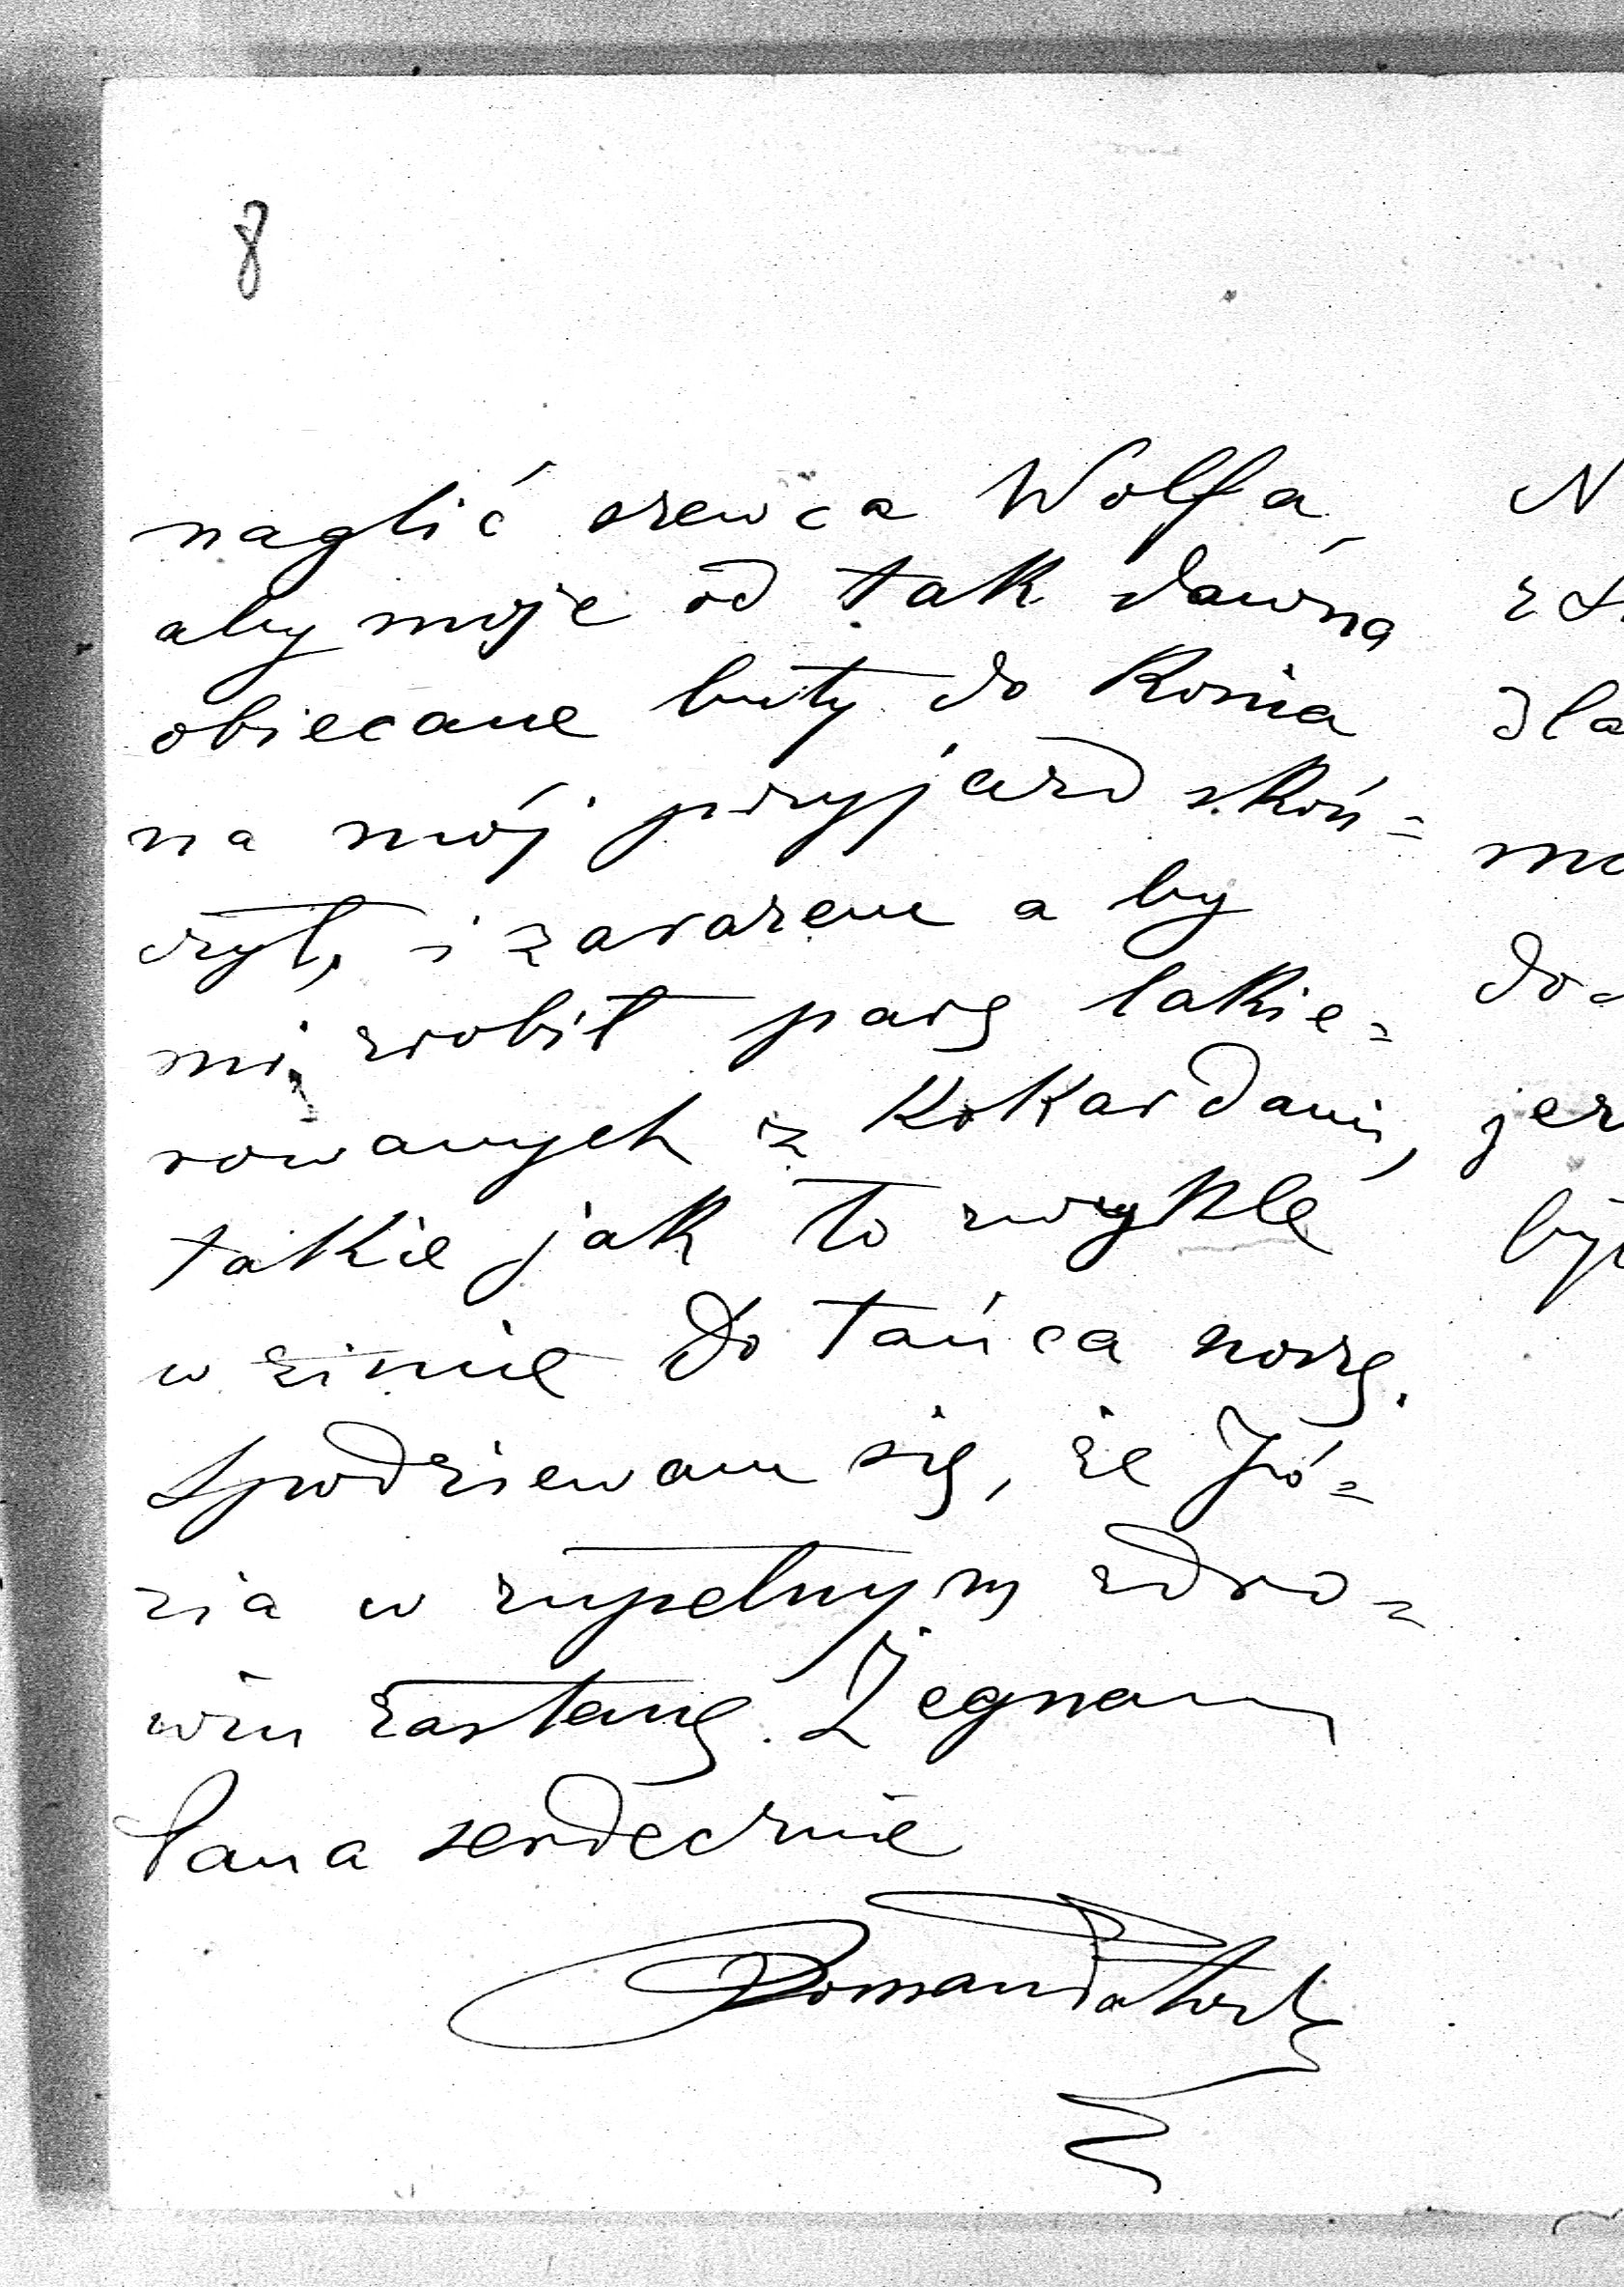 8
naglić szewca Wolfa,
aby moje od tak dawna
obiecane buty do konia
na mój przyjazd skoń=
czył, i zarazem a by
mi zrobił parę lakie=
rowanych z Kokardami,
takie jak to zwykle
w zimie do tańca noszę.
Spodziewam się, że Jó=
zia w zupełnym zdro=
wiu zastanę. Żegnam
Pana serdecznie
N
dla
do=